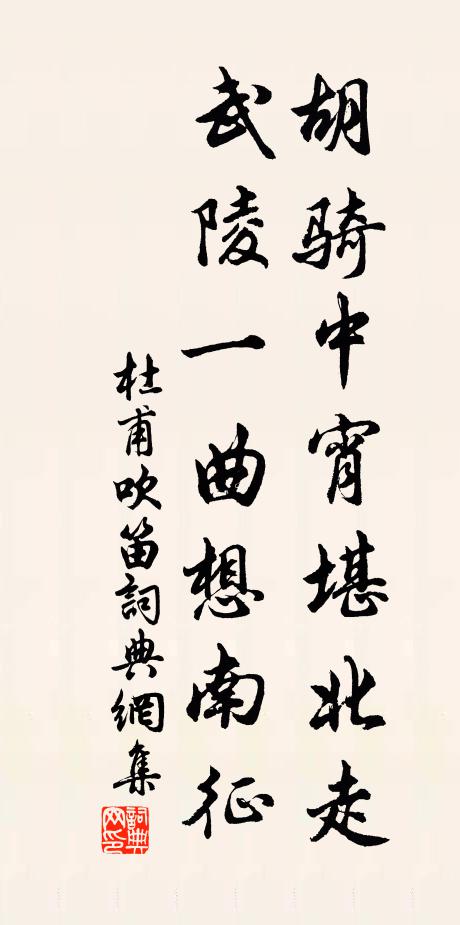 胡骑中宵堪北走
武陵一曲想南征
杜甫吹笛詞典網集
詞典网印